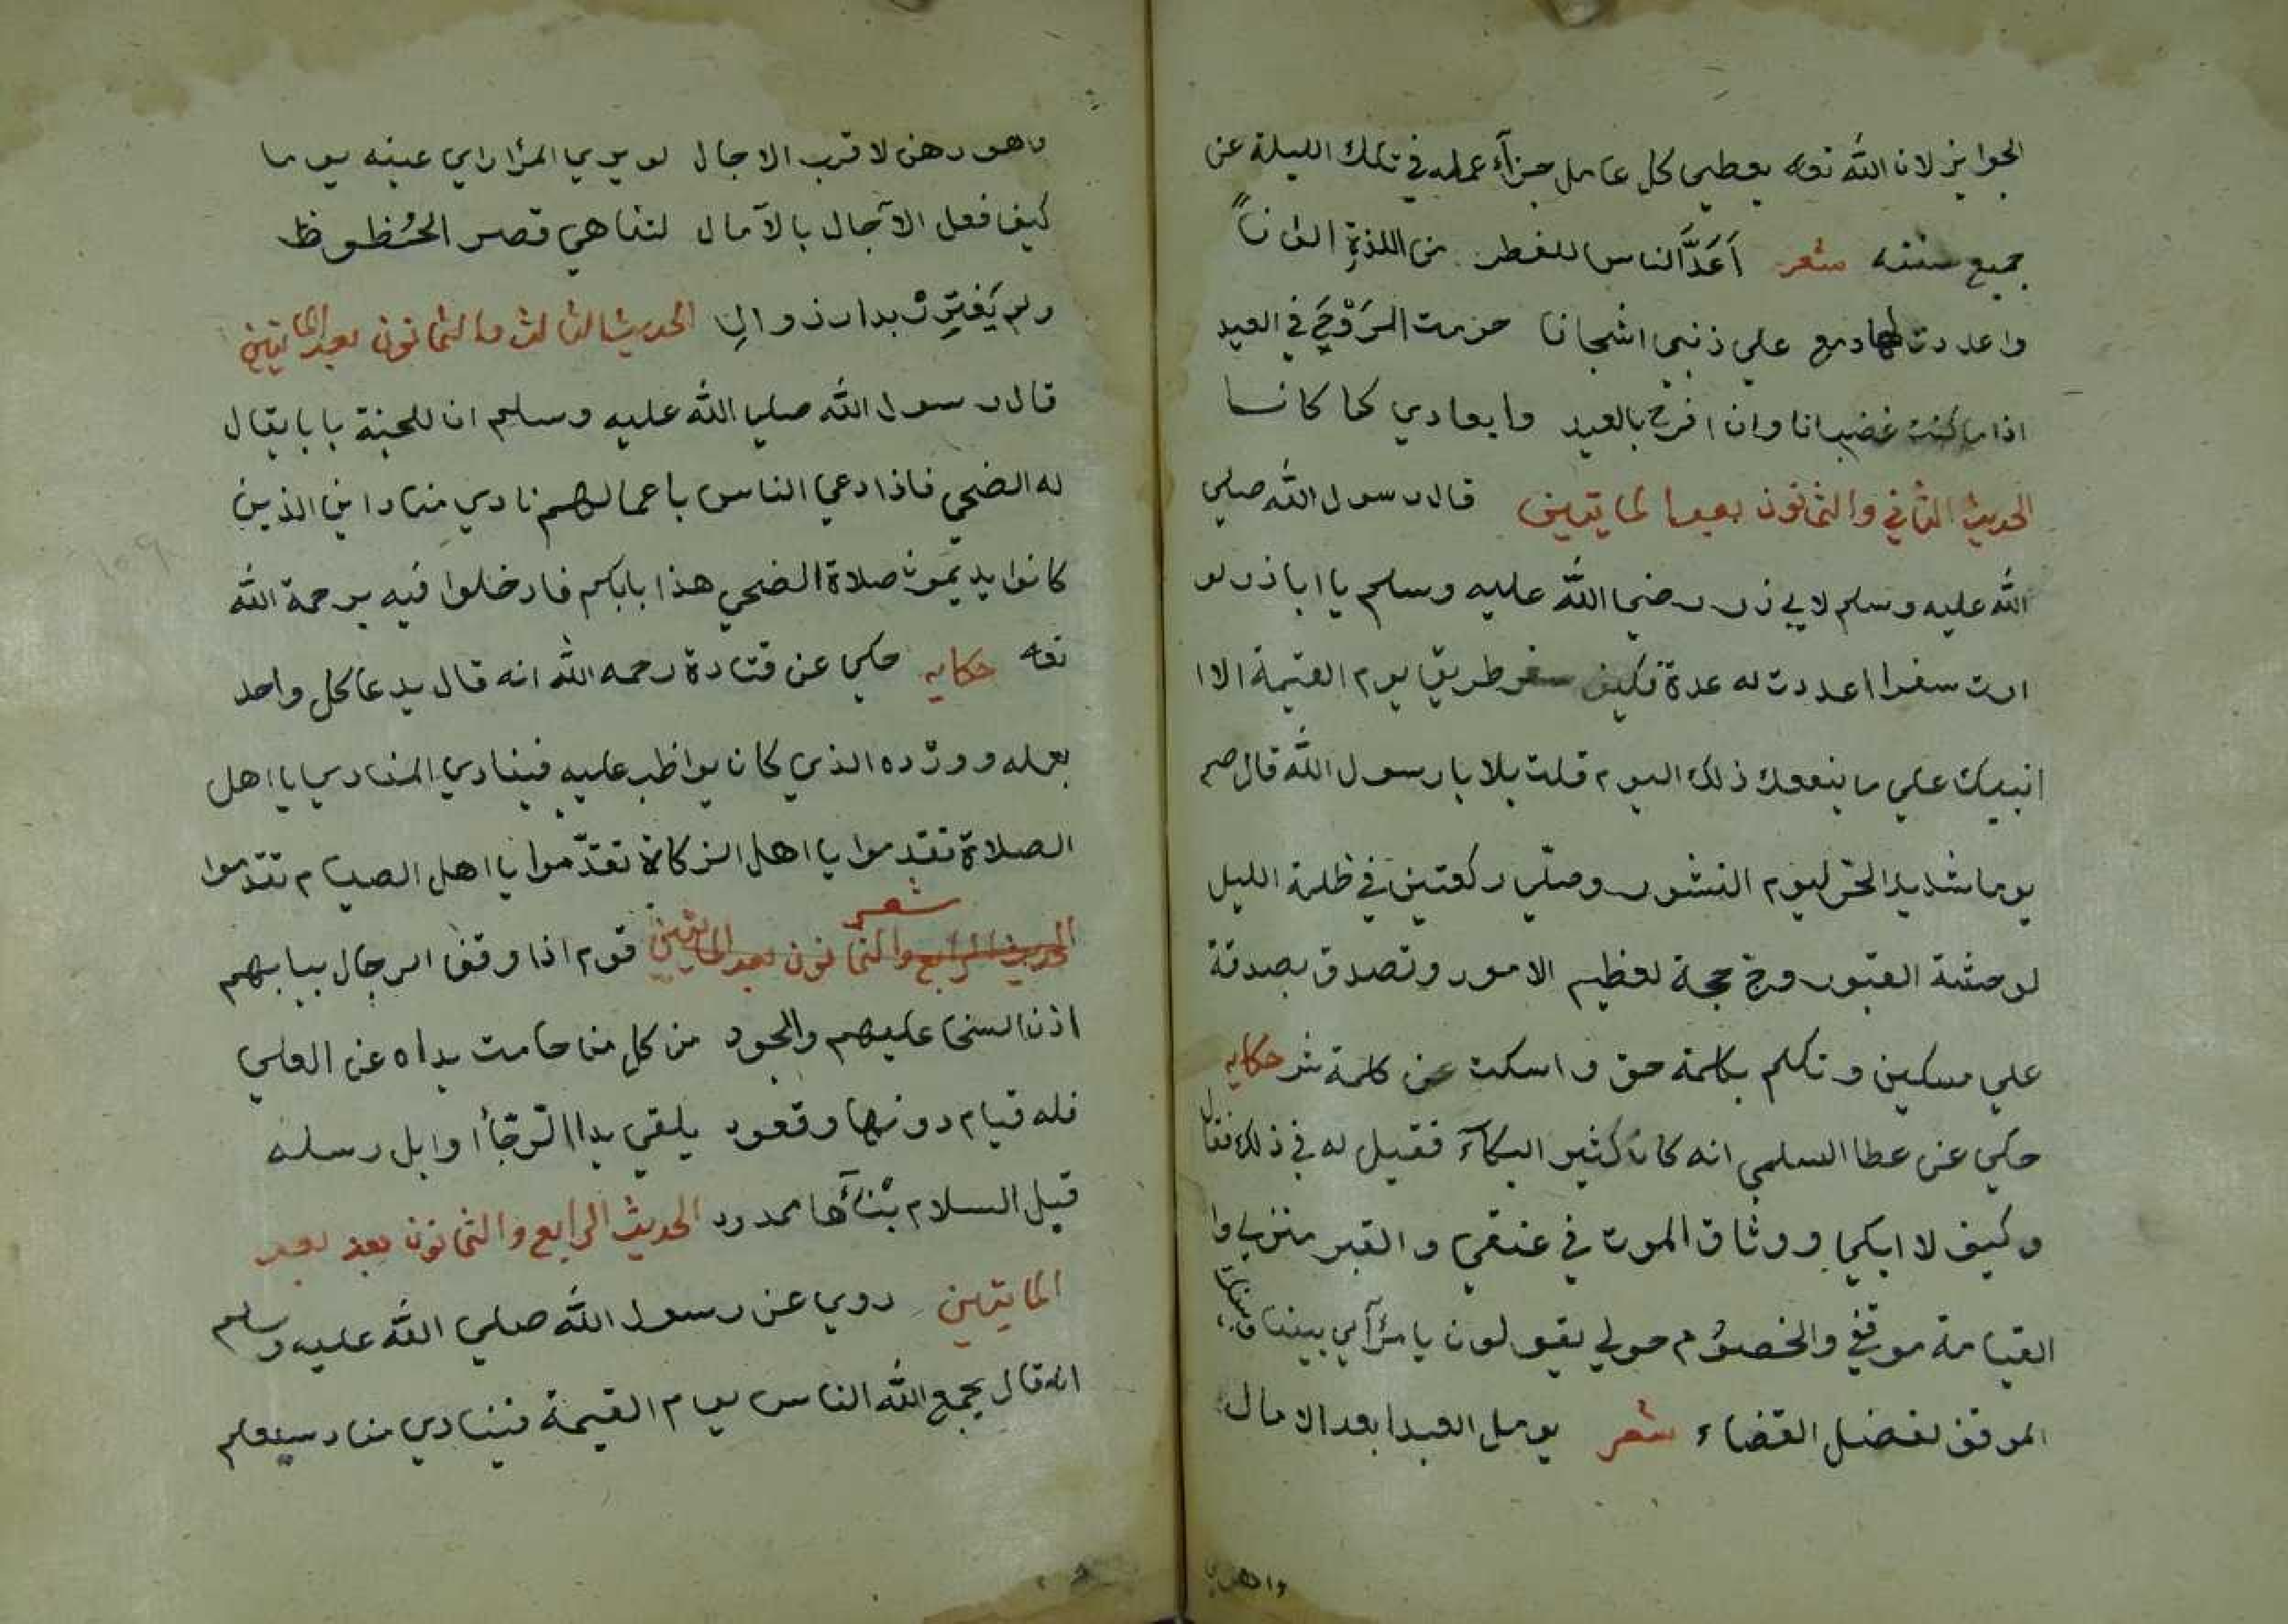 الجوايز لان الله تعه يعطي كل عامل جزآء عمله في تلك الليلة عن
جميع سنته شعر اَعَدَّ الناس للفطر من اللذةِ الواناً
واعددت لها دمع علي ذنبي اشجانا حزمت الرَوْحَ في العيد
اذا ما كنت غضبانا وان افرح بالعيد وايعادي كما كانا
الحديث الثاني والثمانون بعد المايتين قال رسول الله صلي
الله عليه وسلم لابي ذر رضي الله عليه وسلم يا ابا ذر لو
اردت سفرا اعددت له عدة فكيف سفر طريق يوم القيمة الا ا
انبيك علي ما ينفعك ذلك اليوم قلت بلا يا رسول الله قال صم
يوما شديد الحر ليوم النشور وصلّي ركعتين في ظلمة الليل
لوحشة القبور وحج حجة لعظيم الامور وتصدق بصدقة
علي مسكين وتكلم بكلمة حق واسكت عن كلمة شر حكايه
حكي عن عطا السلمي انه كان كثير البكآء فقيل له في ذلك فقال
وكيف لا ابكي ووثاق الموت في عنقي والقبر منزلي وا
القيامة موقفي والخصوُم حولي يقولون يا مرآءي بيننا وبينك
الموقف لفضل القضاء شعر يومل العبد ابعد الامال
واهو
وهو رهن لاقرب الاجال لو يري المرؤ اراي عينه يوما
كيف افعل الآجال بالآمال لتناهي قصر الحُظوظ
ولم يَغترِرْ بدار زوالِ الحديث الثالث والثمانون بعد المايتين
قال رسول الله صلي الله عليه وسلم ان للجنة بابا يقال
له الضحي فاذا دعي الناس باعمالهم نادي مناد اين الذين
كانوا يديمون صلاة الضحي هذا بابكم فادخلوا فيه برحمة الله
تعه حكايه حكي عن قتادة رحمه الله انه قال يدعا كل واحد
بعمله ووِرْده الذي كان يواظب عليه فينادي المنادي يا اهل
الصلاة تقدموا يا اهل الزكاة تقدّموا يا اهل الصيام تقدّموا
شعر
الحديث الرابع والثمانون بعد المايتين قوم اذا وقف الرجال ببابهم
اذن السخا عليهم والجود من كل من حامت يداه عن العلي
فله قيام دونها وقعود يلقي بدا الترجأ اوابل رسله
قبل السلام بْنآءها ممدود الحديث الرابع والثمانون بعد بعد
المايتين روي عن رسول الله صلي الله عليه وسلم
انه قال يجمع الله الناس يوم القيمة فينادي مناد سيعلم